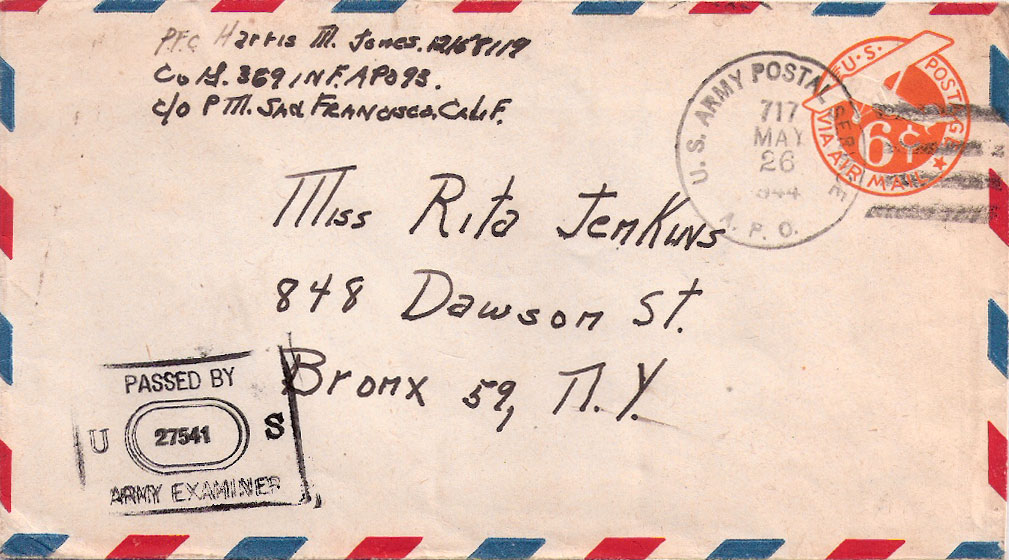 PFC Harris M. Jones. 12168119
Co G. 369 INF. APO 93.
c/o P M. San Francisco, Calif.
U.S. POSTAGE
VIA AIR MAIL
6¢
U.S. ARMY POSTAL SERVICE
717
MAY
26
1944
A. P. O.
Miss Rita Jenkins
848 Dawson St.
Bronx 59, N.Y.
PASSED BY
U 27541 S
ARMY EXAMINER